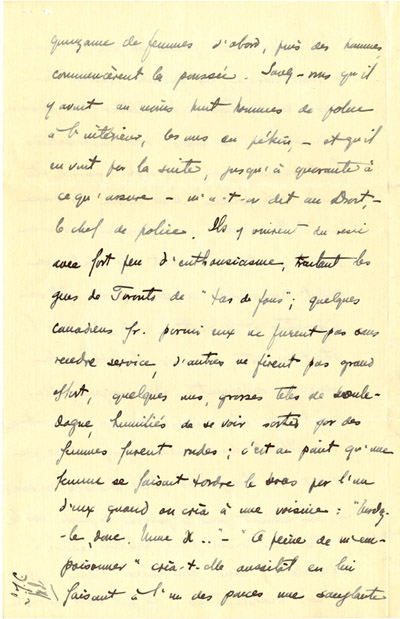 quinzaine de femmes d'abord, puis des hommes
commencèrent la poussée. Savez-vous qu'il
y avait au moins huit hommes de police
à l'intérieur, les uns en pékin, - et qu'il
en vint par la suite, jusqu'à quarante à
ce qu'assure - m'a-t-on dit au Droit -
le chef de police. Ils y vinrent du reste
avec fort peu d'enthousiasme, traitant les
gens de Toronto de "tas de fous"; quelques
canadiens fr. parmi eux ne furent pas sans
rendre service, d'autres ne firent pas grand
effort, quelques uns, grosses têtes de boule-
dogue, humiliés de se voir sortis par des
femmes furent rudes; c'est au point qu'une
femme se faisant tordre le bras par l'un
d'eux quand on cria à une voisine: "Mordez-
le, donc, Mme X.." - "Ce peine de m'em-
poisonner" cria-t-elle aussitôt en lui
faisant à l'un des pouces une sanglante